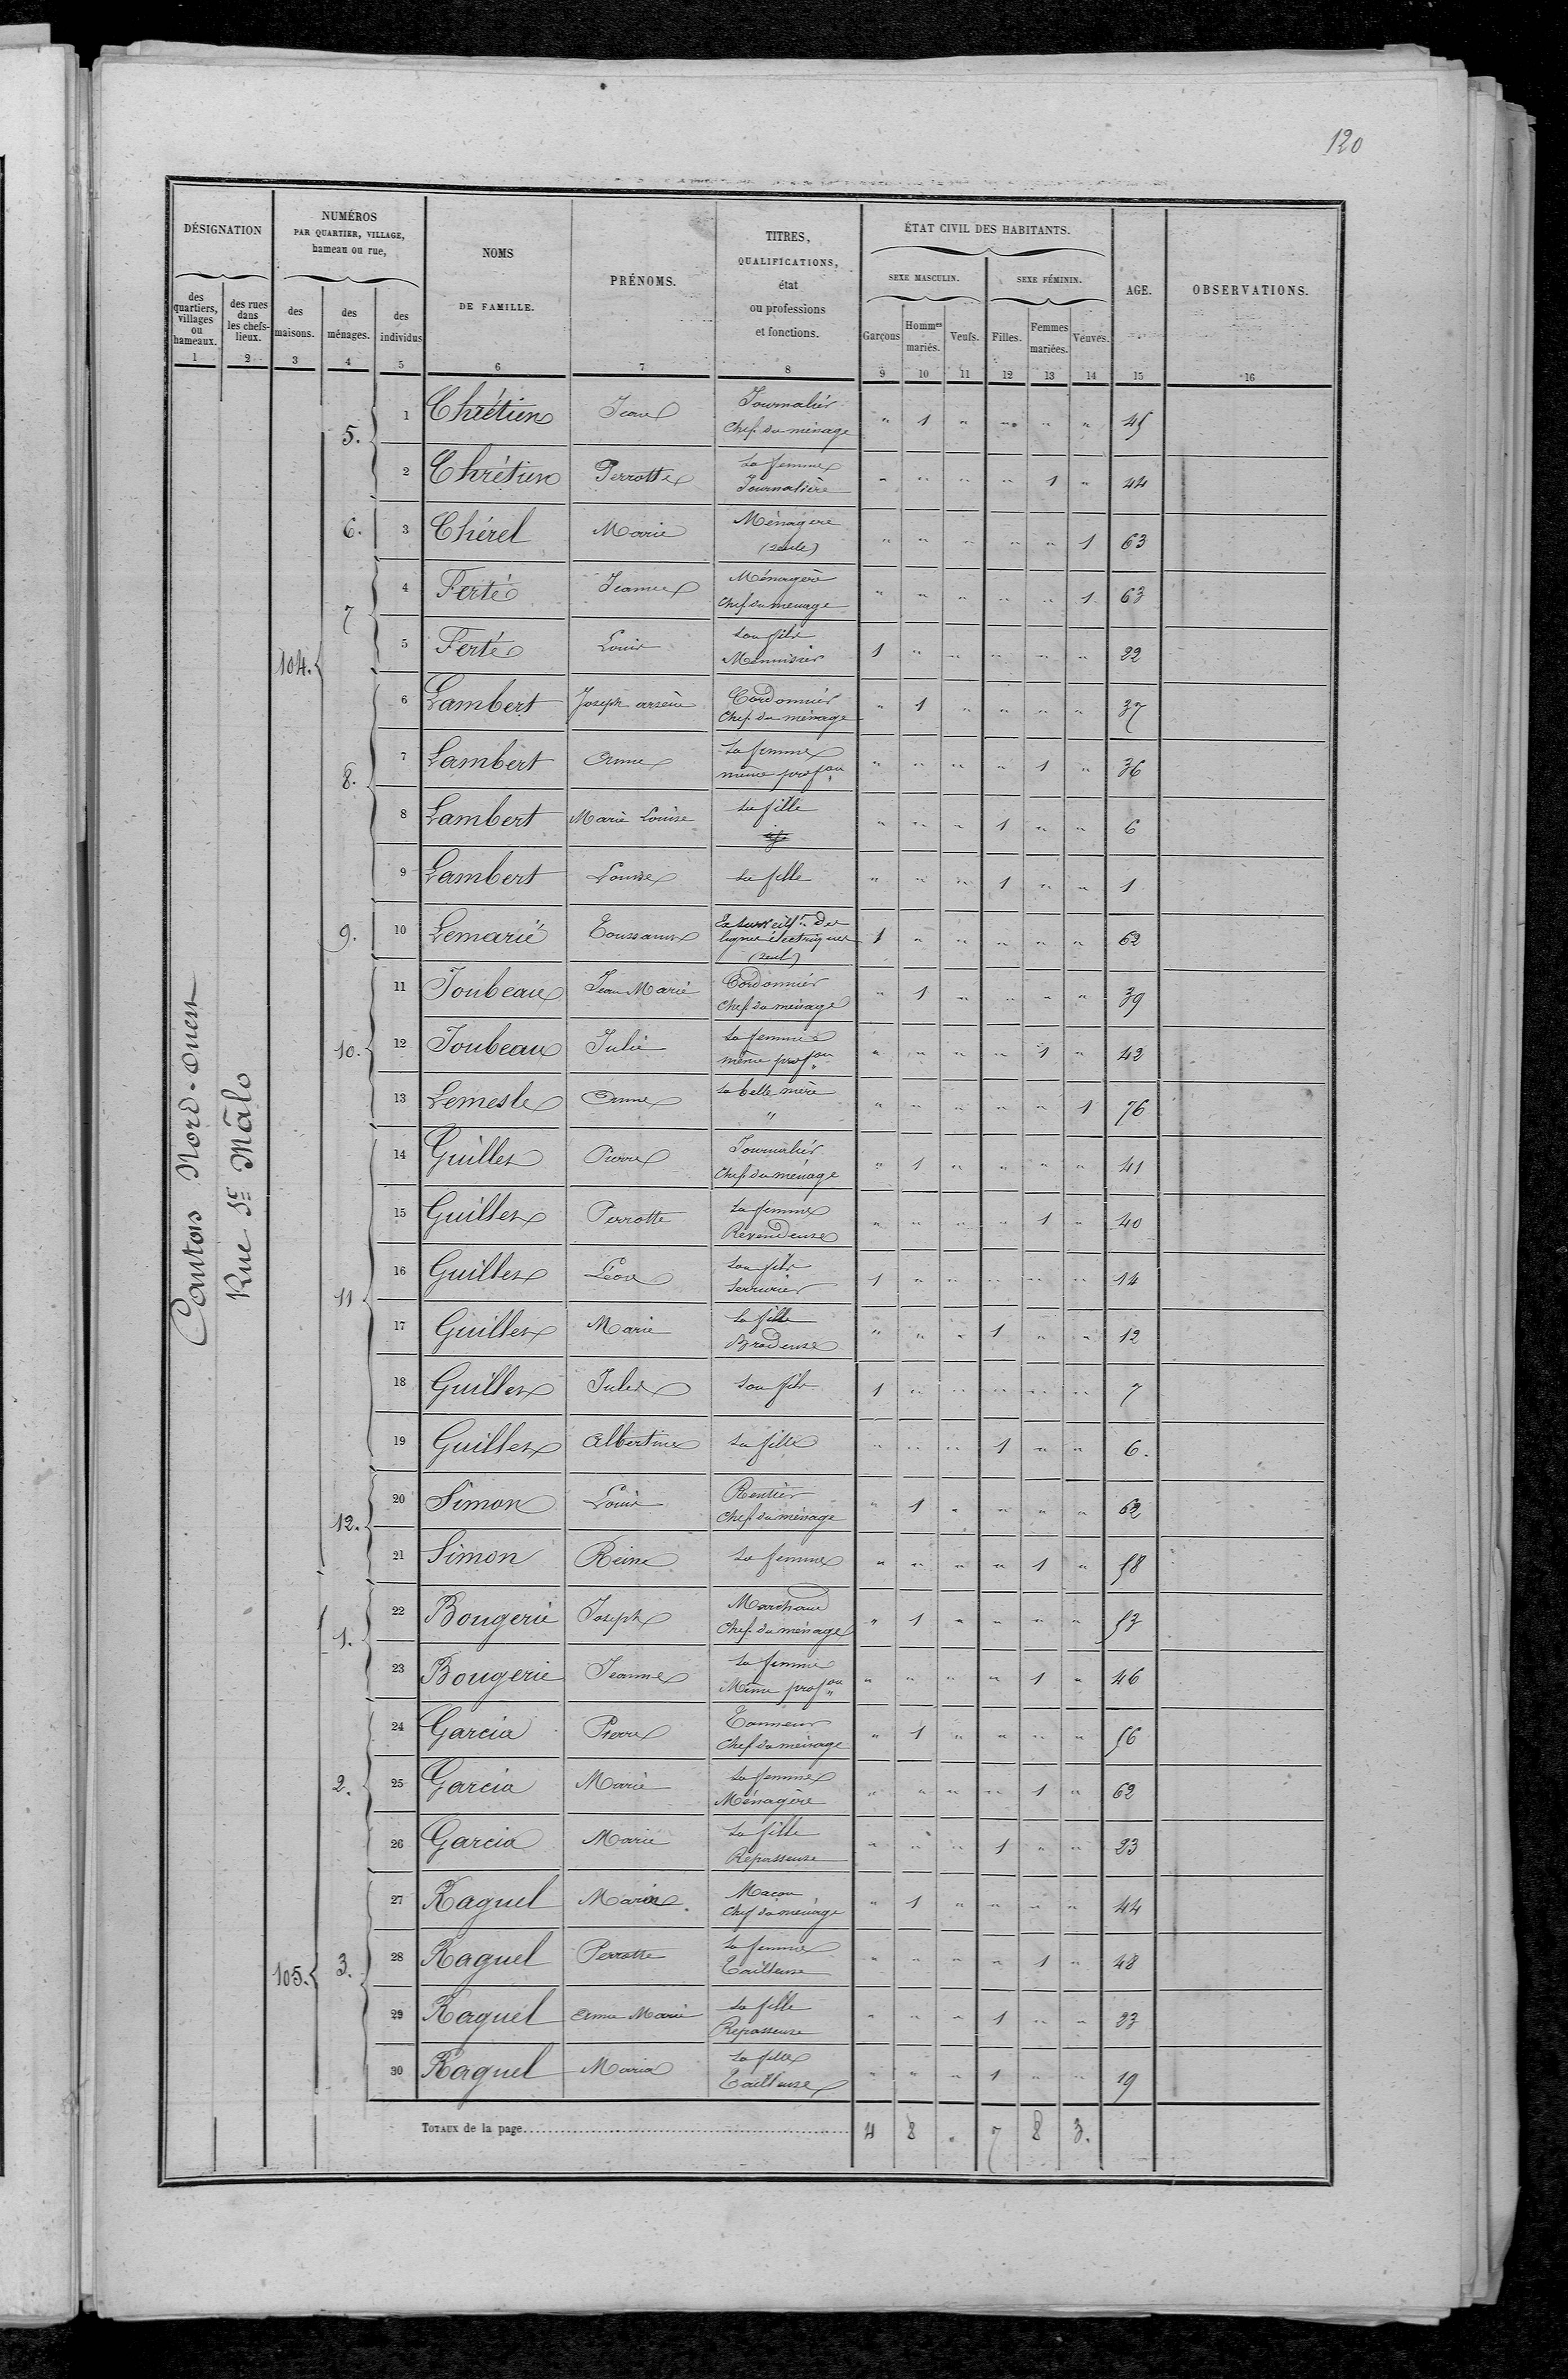 120
DÉSIGNATION
NUMÉROS
PAR QUARTIER, VILLAGE,
hameau ou rue,
NOMS
DE FAMILLE.
PRÉNOMS.
TITRES,
QUALIFICATIONS,
état
ou professions
et fonctions.
ÉTAT CIVIL DES HABITANTS.
SEXE MASCULIN.
SEXE FÉMININ.
AGE.
OBSERVATIONS.
des quartiers, villages ou hameaux.
des rues dans les chefs-lieux.
des maisons.
des ménages.
des individus
Garçons
Hommes mariés.
Veufs.
Filles.
Femmes mariées.
Veuves.
1 2 3 4 5 6 7 8 9 10 11 12 13 14 15 16
Canton Nord-Ouest
Rue St Mâlo
104.
5. 1 Chrétien Jean Journalier Chef du ménage " 1 " " " " 45
2 Chrétien Perrotte Sa femme Journalière " " " " 1 " 44
6. 3 Chérel Marie Ménagère (seule) " " " " " 1 63
7 4 Ferté Jeanne Ménagère Chef du ménage " " " " " 1 63
5 Ferté Louis Son fils Menuisier 1 " " " " " 22
8. 6 Lambert Joseph arsène Cordonnier Chef du ménage " 1 " " " " 37
7 Lambert Anne Sa femme même profon " " " " 1 " 36
8 Lambert Marie Louise Sa fille " " " 1 " " 6
9 Lambert Louise Sa fille " " " 1 " " 1
9. 10 Lemarié Toussaint lignes électriques (seul) 1 " " " " " 62
10. 11 Joubeaux Jean Marie Cordonnier Chef du ménage " 1 " " " " 39
12 Joubeaux Julie Sa femme même profon " " " " 1 " 42
13 Lemesle Anne Sa belle mère " " " " " " 1 76
11 14 Guilles Pierre Journalier Chef du ménage " 1 " " " " 41
15 Guilles Perrotte Sa femme Revendeuse " " " " 1 " 40
16 Guilles Léon Son fils Serrurier 1 " " " " " 14
17 Guilles Marie Sa fille Brodeuse " " " 1 " " 12
18 Guilles Jules Son fils 1 " " " " " 7
19 Guilles Albertine Sa fille " " " 1 " " 6.
12. 20 Simon Louis Rentier Chef du ménage " 1 " " " " 62
21 Simon Reine Sa femme " " " " 1 " 58
105.
1. 22 Bougerie Joseph Marchand Chef du ménage " 1 " " " " 53
23 Bougerie Jeanne Sa femme Même profon " " " " 1 " 46
2. 24 Garcia Pierre Tanneur Chef du ménage " 1 " " " " 56
25 Garcia Marie Sa femme Ménagère " " " " 1 " 62
26 Garcia Marie Sa fille Repasseuse " " " 1 " " 23
3. 27 Raguel Marie Maçon Chef du ménage " 1 " " " " 44
28 Raguel Perrotte Sa femme Tailleuse " " " " 1 " 48
29 Raguel Anne Marie Sa fille Repasseuse " " " 1 " " 23
30 Raguel Maria Sa fille Tailleuse " " " 1 " " 19
TOTAUX de la page 4 8 " 7 8 3.